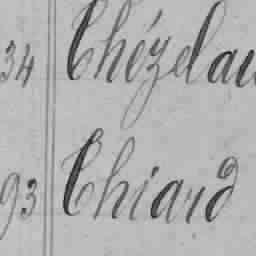 34 Chézelau
93 Chiard